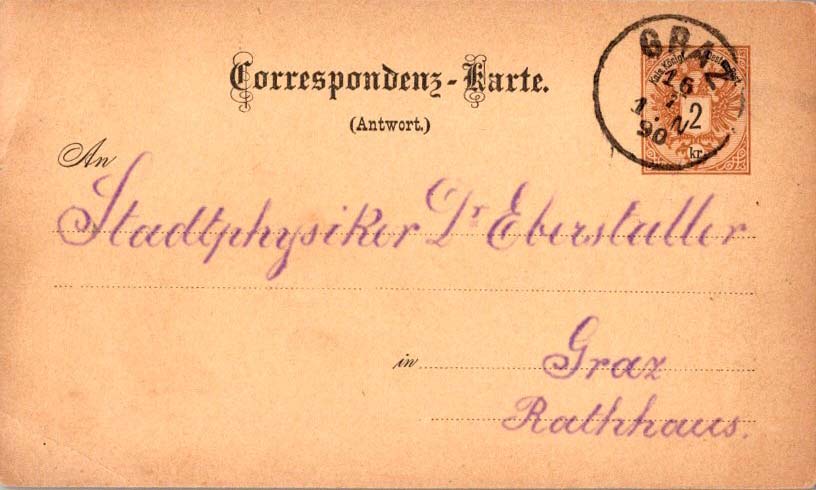 Correspondenz-Karte.
(Antwort.)
GRAZ
16
1
90
2
kr.
An
Stadtphysiker Dr Eberstaller
in Graz
Rathhaus.